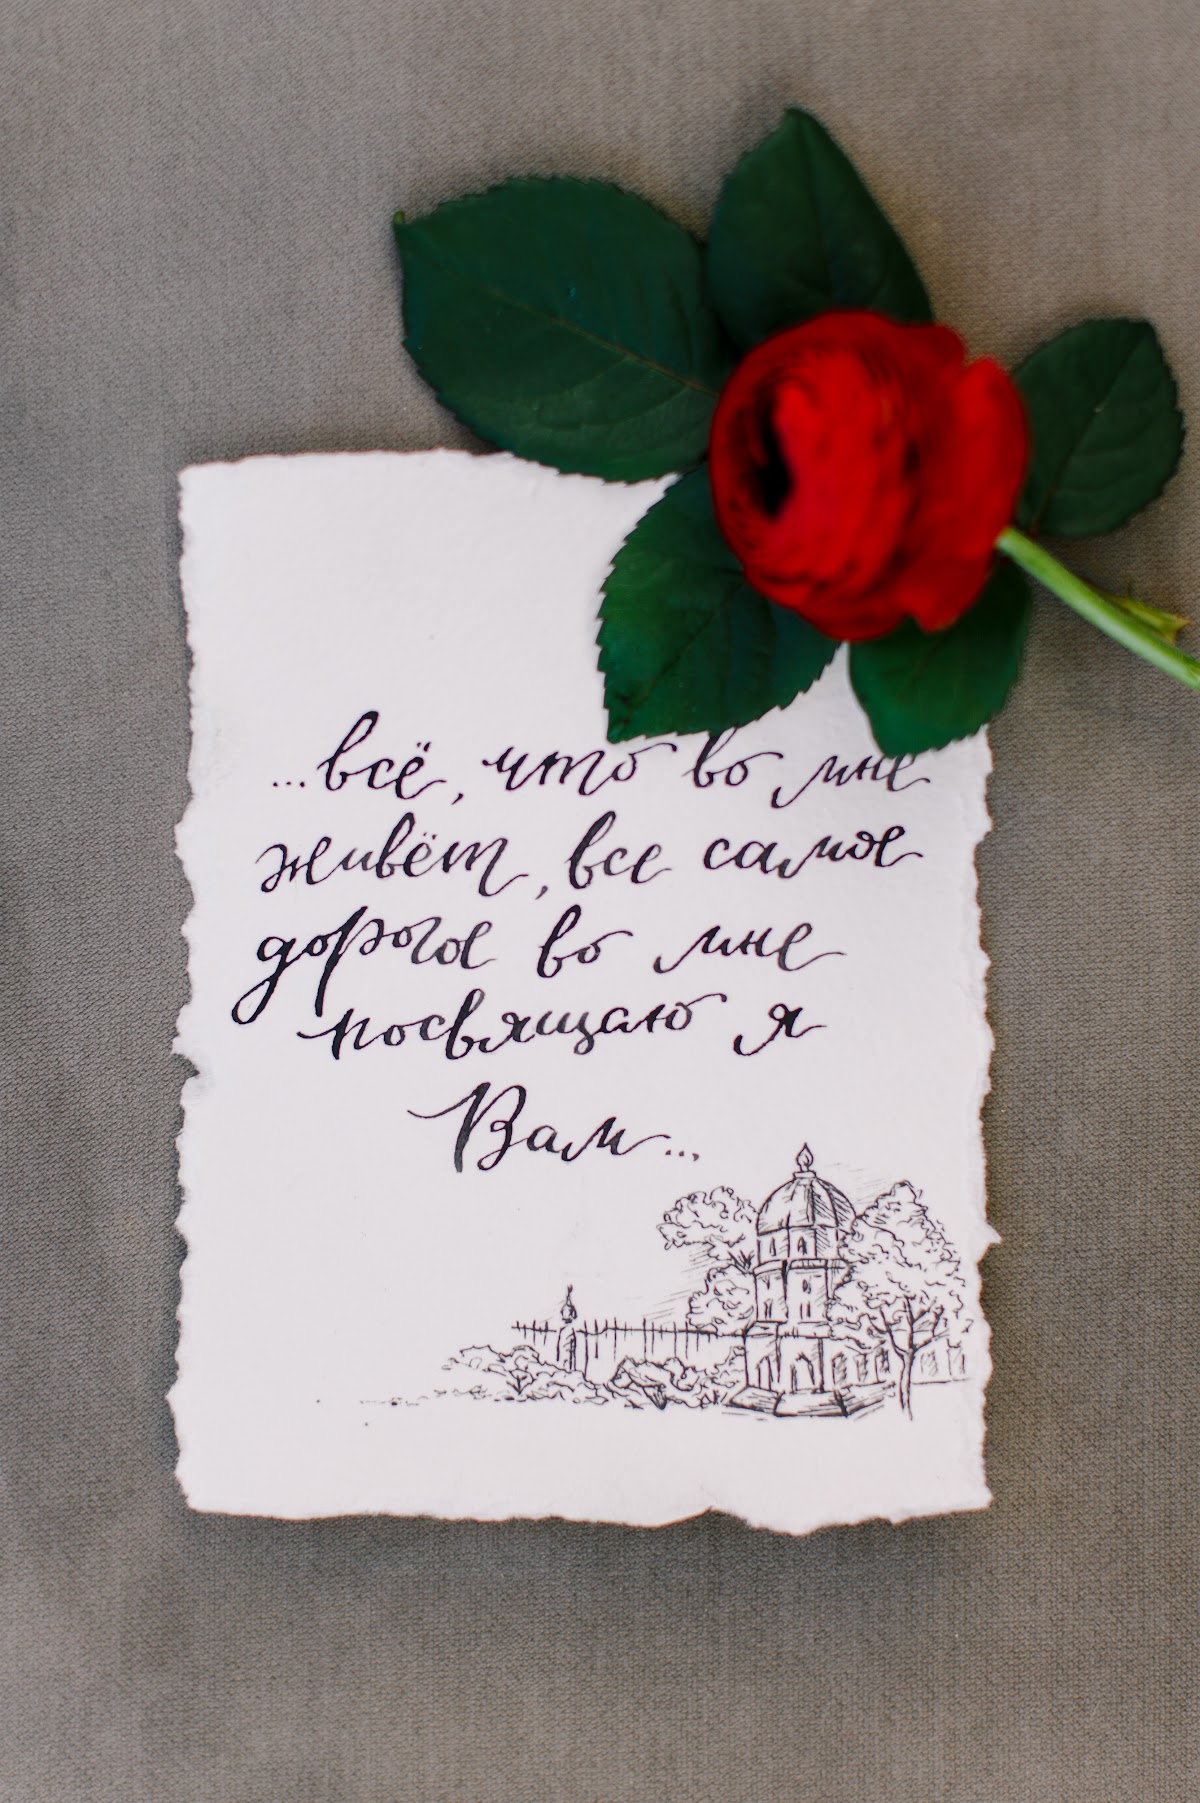 ...всё, что во мне
живёт, все самое
дорогое во мне
посвящаю я
Вам...